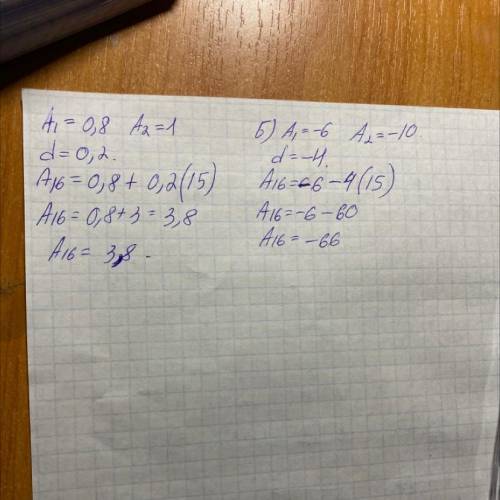 A₁ = 0,8 A₂ = 1
d = 0,2.
A₁₆ = 0,8 + 0,2(15)
A₁₆ = 0,8 + 3 = 3,8
A₁₆ = 3,8.
Б) A₁ = -6 A₂ = -10.
d = -4.
A₁₆ = -6 - 4(15)
A₁₆ = -6 - 60
A₁₆ = -66